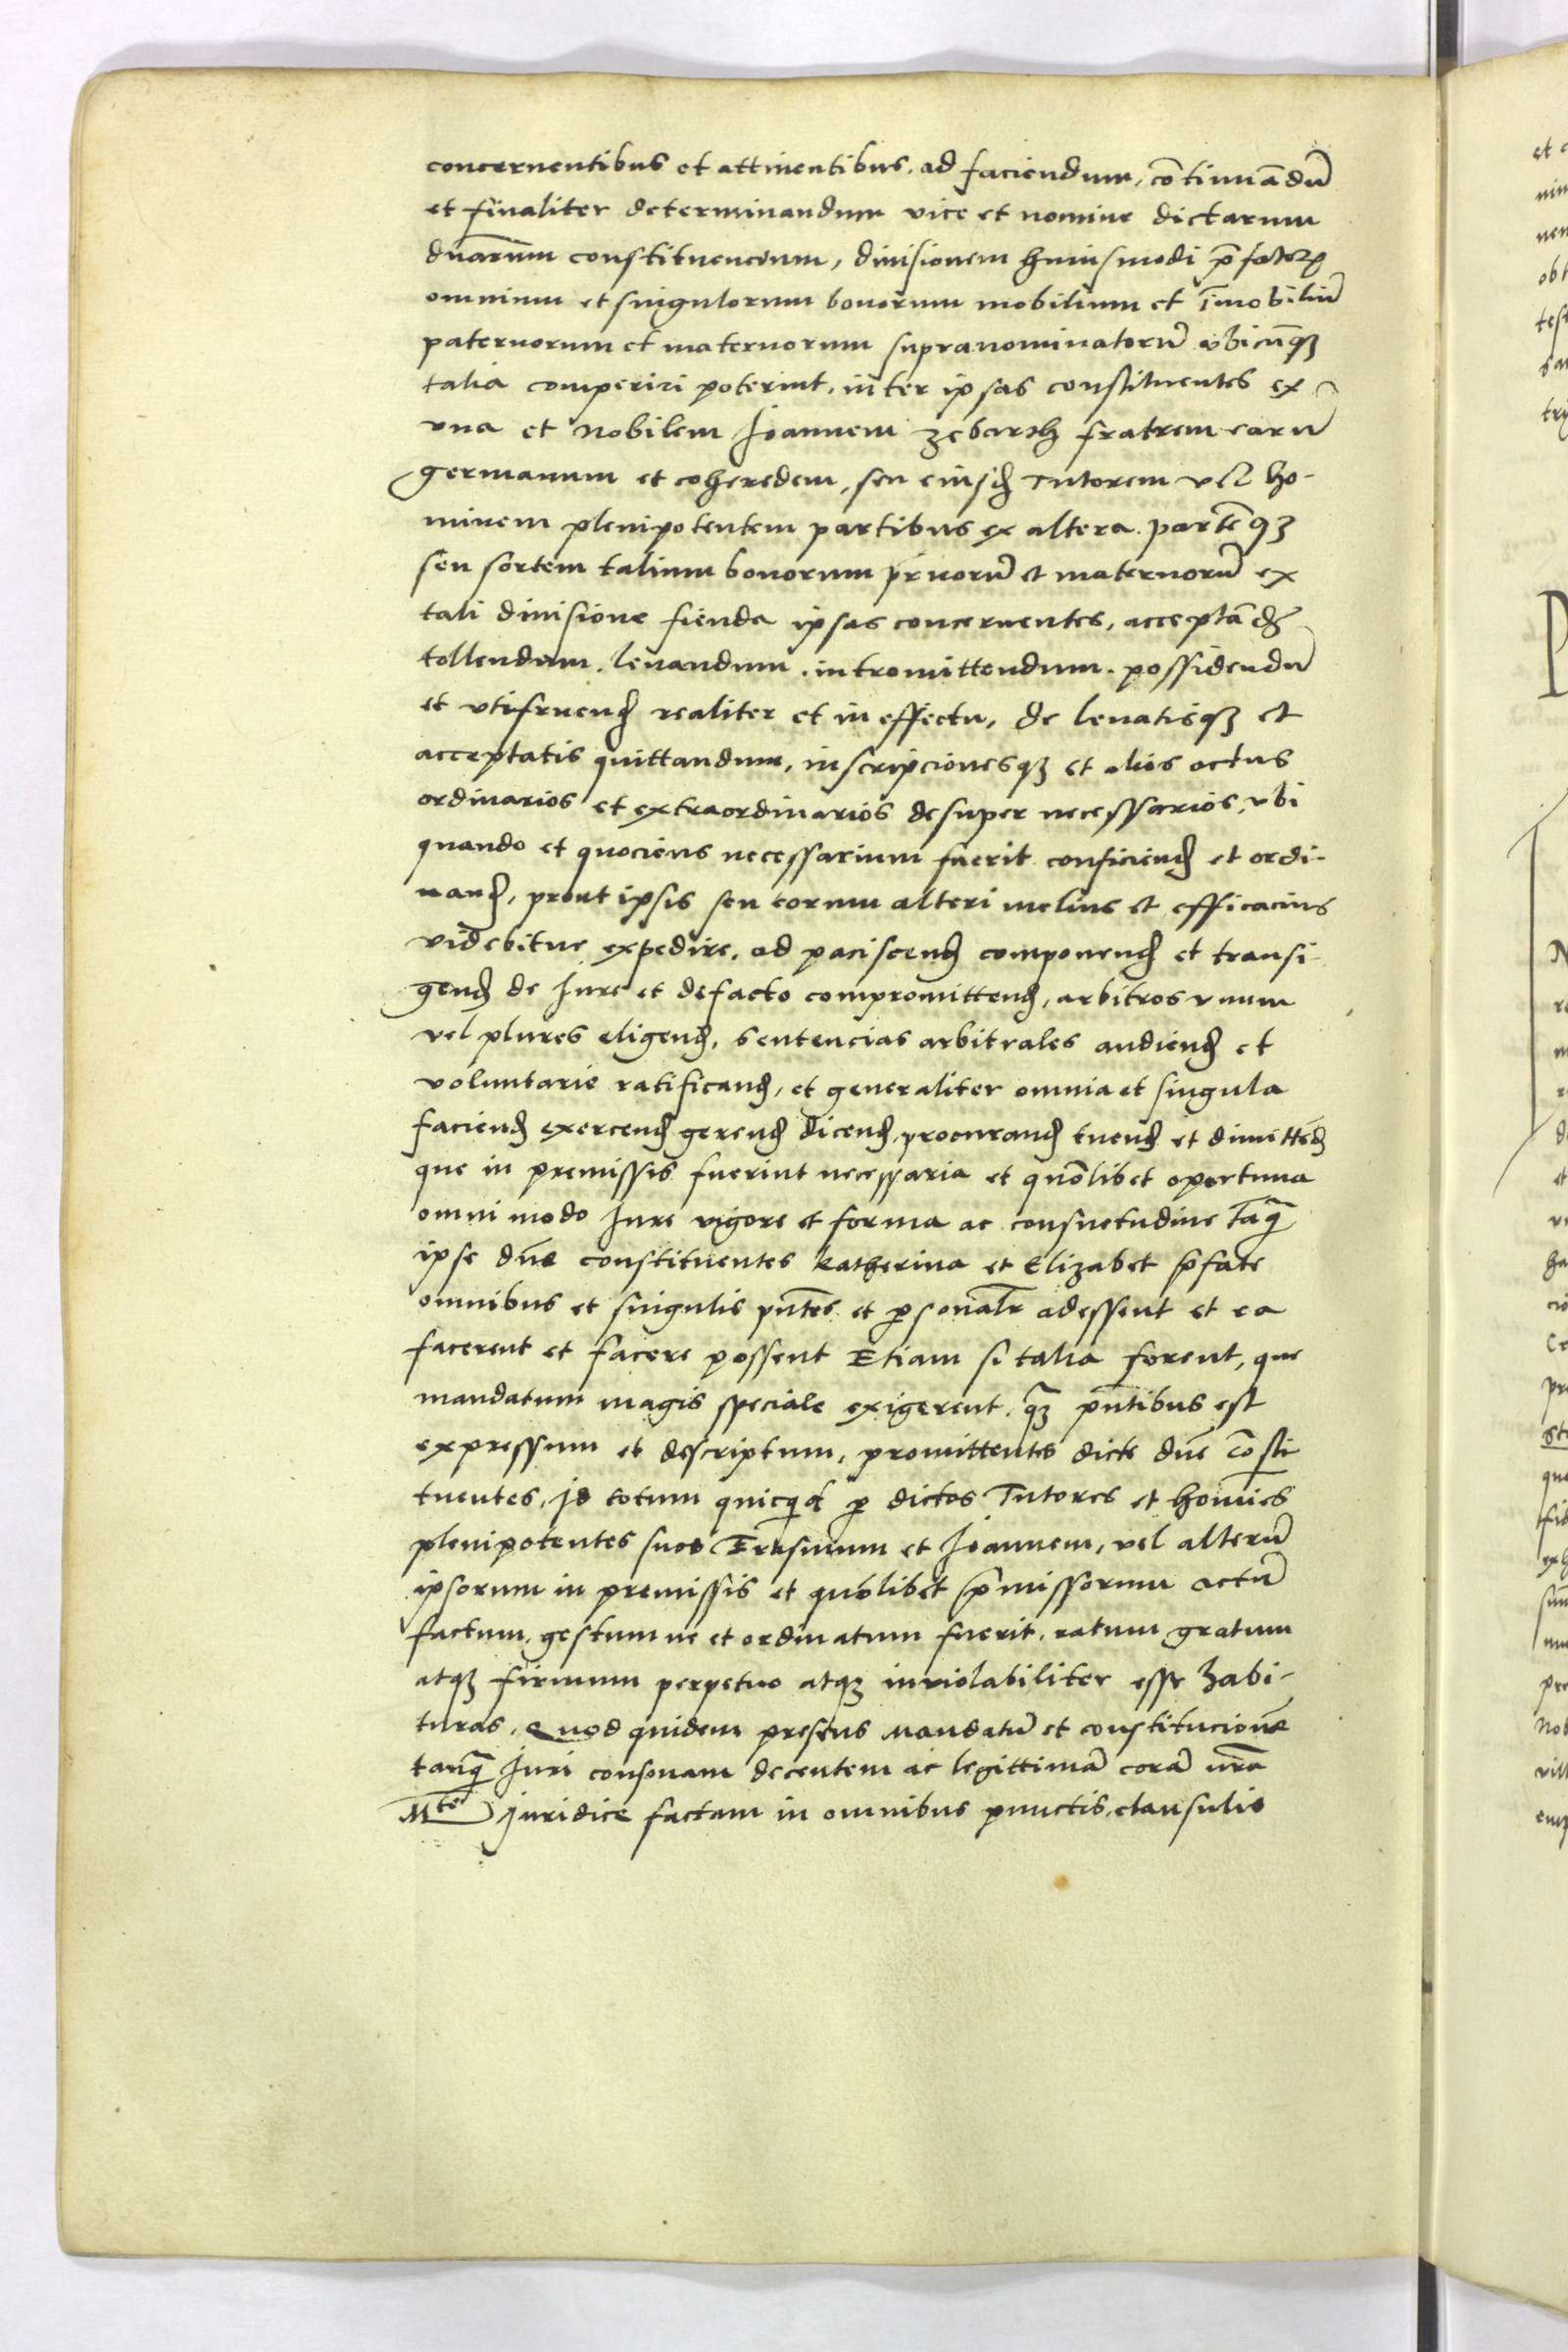 concernentibus et attinentibus, ad faciendum, cōtinuādū
et finaliter determinandum vice et nomine dictarum
duarum constituencium, divisionem huiusmodi p̄fatoꝝ
omnium et singulorum bonorum mobilium et īmobiliū
paternorum et maternorum supranominatorū vbicūqꝫ
talia comperiri poterint, inter ipsas constituentes ex
vna et Nobilem Joannem Zebarth fratrem earū
germanum et coheredem, seu eiusd̄ Tutorem vel ho-
minem plenipotentem partibus ex altera. partēqꝫ
seu sortem talium bonorum pr̄norū et maternorū ex
tali divisione fienda ipsas concernentes, acceptād̄
tollendum, levandum, intromittendum, possidendū
et vtifruend̄ realiter et in effectu, de levatisqꝫ et
acceptatis quittandum, inscripcionesqꝫ et alios actus
ordinarios et extraordinarios desuper necessarios, vbi
quando et quociens necessarium fuerit conficiend̄ et ordi-
nand̄, prout ipsis seu eorum alteri melius et efficacius
videbitur expedire, ad paciscend̄ componend̄ et transi-
gend̄ de Jure et de facto compromittend̄, arbitros vnum
vel plures eligend̄, sentencias arbitrales audiend̄ et
voluntarie ratificand̄, et generaliter omnia et singula
faciend̄ exercend̄ gerend̄ dicend̄, procurand̄ tuend̄ et dimittēd̄
que in premissis fuerint necessaria et quōlibet oportuna
omni modo Jure vigore et forma ac consuetudine tāq̄
ipse dn̄e constituentes Katherina et Elizabet p̄fate
omnibus et singulis pn̄tes et ꝑsonalr̄ adessent et ea
facerent et facere possent Etiam si talia forent, que
mandatum magis speciale exigerent, q̄ꝫ pn̄tibus est
expressum et descriptum, promittentes dicte dn̄e cōsti
tuentes, Jd totum quicq̇d ꝑ dictos Tutores et homīes
plenipotentes suos Erasmum et Joannem, vel alterū
ipsorum in premissis et quōlibet p̄missorum actū
factum, gestum ve et ordinatum fuerit, ratum gratum
atqꝫ firmum perpetuo atqꝫ inviolabiliter esse habi-
turas. Quod quidem presens Mandatū et constitucionē
tanq̄ Juri consonam decentem ac legittimā corā vr̄a
Mte Juridice factam in omnibus punctis, clausulis